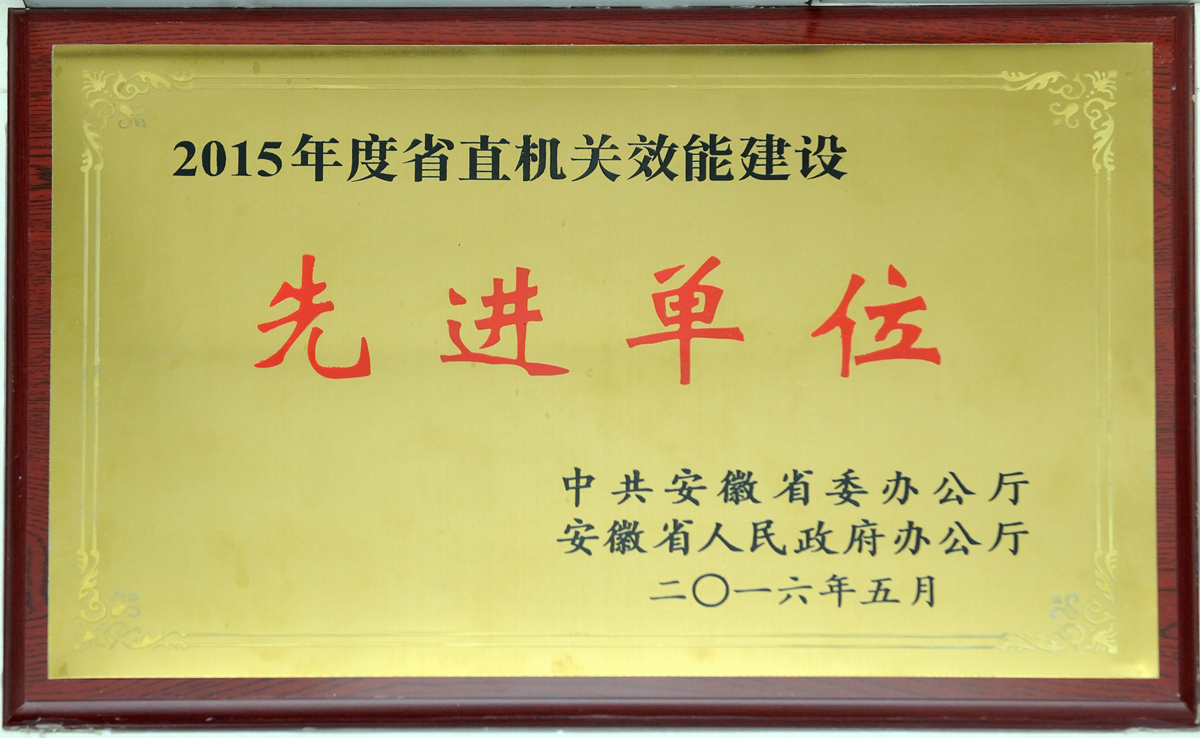 2015年度省直机关效能建设
先进单位
中共安徽省委办公厅
安徽省人民政府办公厅
二〇一六年五月